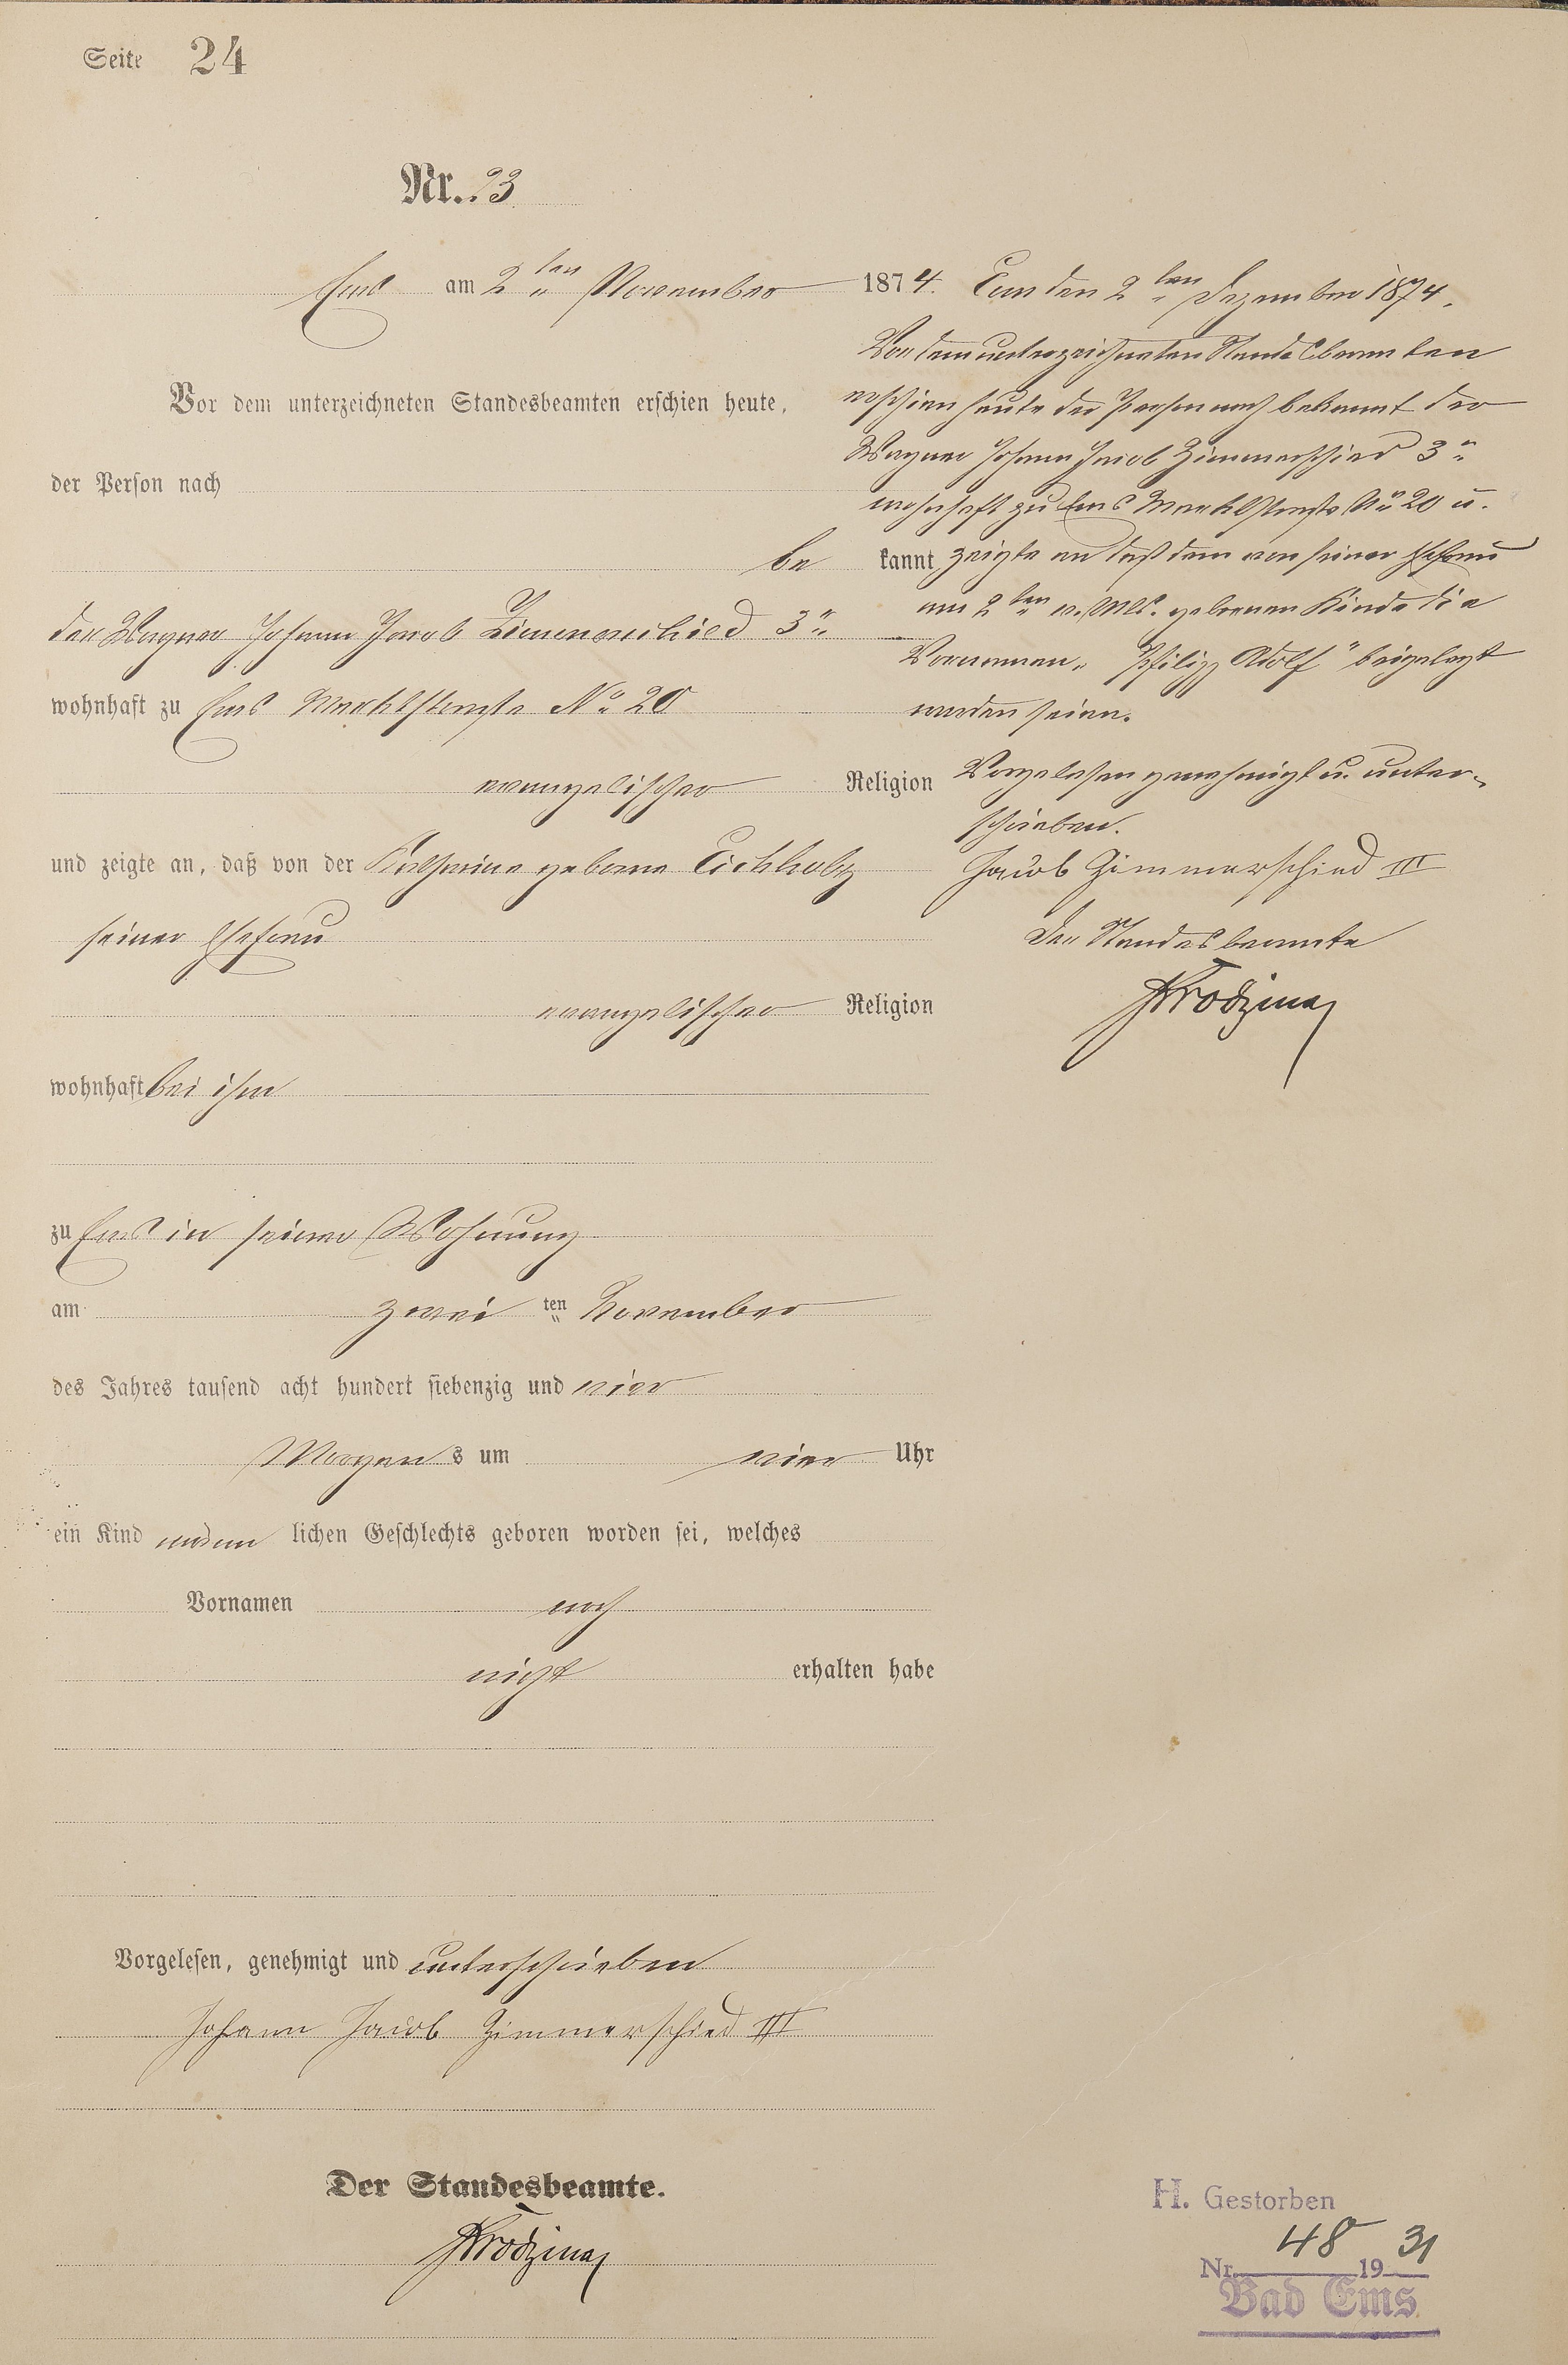 Seite 24
Nr. 23
Ems am 2ten November 1874.
Vor dem unterzeichneten Standesbeamten erschien heute,
der Person nach
bekannt
der Wagner Johann Jacob Zimmerschied 3r
wohnhaft zu Ems Marktstraße No 20
evangelischer Religion
und zeigte an, daß von der Katharine geborne Eichholz
seiner Ehefrau
evangelischer Religion
wohnhaft bei ihm
zu Ems in seiner Wohnung
am zwei ten November
des Jahres tausend acht hundert siebenzig und vier
Morgens um vier Uhr
ein Kind männlichen Geschlechts geboren worden sei, welches
Vornamen noch
nicht erhalten habe
Vorgelesen, genehmigt und unterschrieben
Johann Jacob Zimmerschied III
Der Standesbeamte.
Ems den 2ten Dezember 1874.
Vor dem unterzeichneten Standesbeamten
erschien heute der Person nach bekannt der
Wagner Johann Jacob Zimmerschied 3r
wohnhaft zu Ems Marktstraße No 20 u.
zeigte an daß dem von seiner Ehefrau
am 2ten v. Mts. geborenen Kinde die
Vornamen „Philipp Adolf" beigelegt
worden seien.
Vorgelesen genehmigt u. unter-
schrieben.
Jacob Zimmerschied III
Der Standesbeamte
H. Gestorben
Nr. 48 1931
Bad Ems